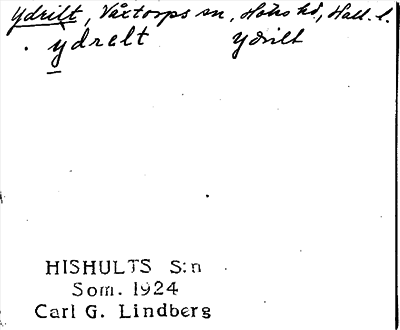 Ydrilt, Växtorps sn, Höks hd, Hall. l.
ydrelt Ydrilt
HISHULTS S:n
Som. 1924
Carl G. Lindberg